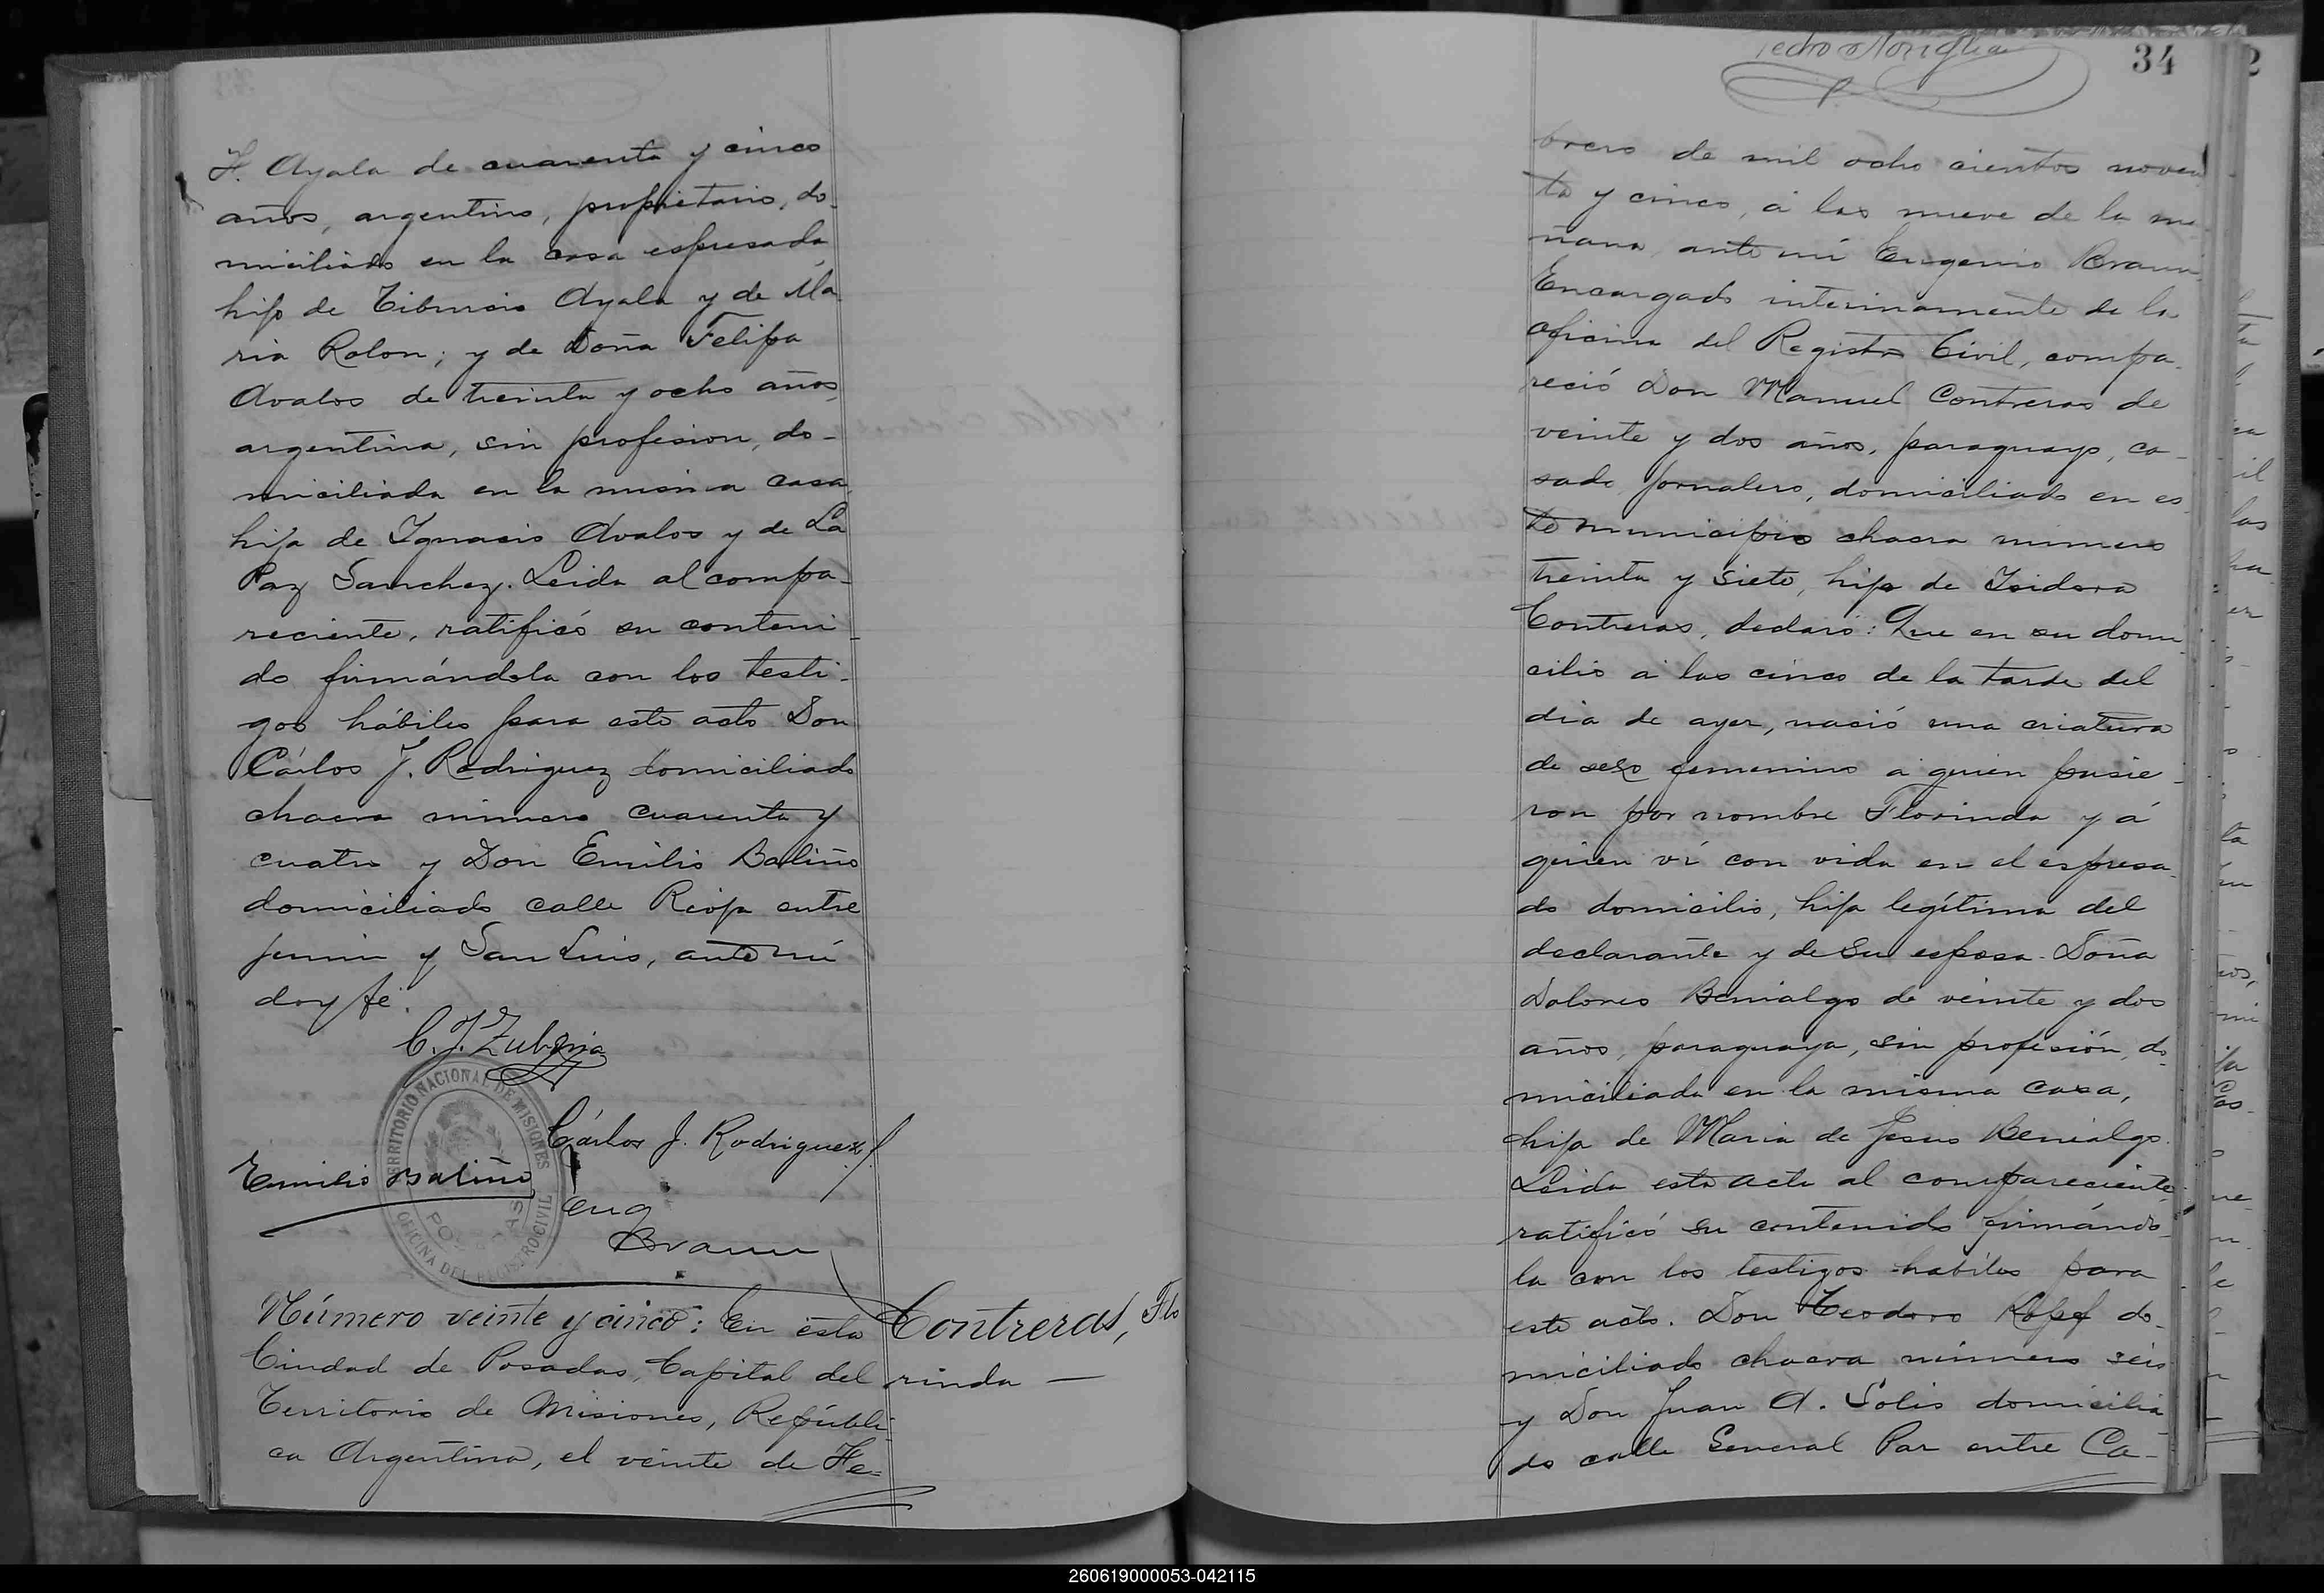 F. Ayala de cuarenta y cinco
años, argentino, propietario, do-
miciliado en la casa espresada
hijo de Tibursio Ayala y de Ma
ria Rolon; y de Doña Felipa
Avalos de treinta y ocho años,
argentina, sin profesion, do-
miciliada en la misma casa
hija de Ignacio Avalos y de La
Paz Sanchez. Leida al compa-
reciente, ratificó su conteni
do firmándola con los testi-
gos hábiles para este acto Don
Cárlos J. Rodriguez domiciliado
chacra número cuarenta y
cuatro y Don Emilio Baliño
domiciliado calle Rioja entre
Junin y San Luis, ante mí
doy fé.
C. J. Zubria
TERRITORIO NACIONAL DE MISIONES
Cárlos J. Rodriguez
Emilio Baliño
POSADAS
OFICINA DEL REGISTRO CIVIL
Eug
Braun
Número veinte y cinco: En esta
Contreras, Flo
Ciudad de Posadas, Capital del
rinda —
Territorio de Misiones, Repúbli-
ca Argentina, el veinte de Fe-
34
Pedro
brero de mil ocho cientos noven
ta y cinco, á las nueve de la ma
ñana ante mí Eugenio Braun
Encargado interinamente de la
oficina del Registro Civil, compa-
reció Don Manuel Contreras de
veinte y dos años, paraguayo, ca-
sado jornalero, domiciliado en es-
te municipio chacra número
treinta y siete, hijo de Isidora
Contreras, declaró: Que en su domi
cilio á las cinco de la tarde del
dia de ayer, nació una criatura
de sexo femenino á quien pusie-
ron por nombre Florinda y á
quien ví con vida en el espresa-
do domicilio, hija legítima del
declarante y de su esposa Doña
Dolores Benialgo de veinte y dos
años, paraguaya, sin profesión, do-
miciliada en la misma casa,
hija de Maria de Jesus Benialgo.
Leida esta acta al compareciente
ratificó su contenido firmándo-
la con los testigos hábiles para
este acto. Don Teodoro do-
miciliado chacra número seis
y Don Juan A. Solis domicilia
do calle General Paz entre Ca-
260619000053-042115